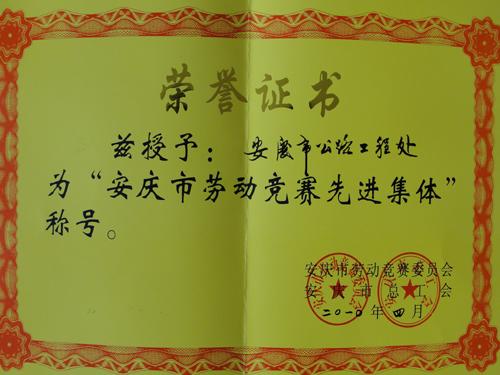 荣誉证书
兹授予：安庆市公路工程处
为“安庆市劳动竞赛先进集体”
称号。
安庆市劳动竞赛委员会
安庆市总工会
二〇一〇年四月